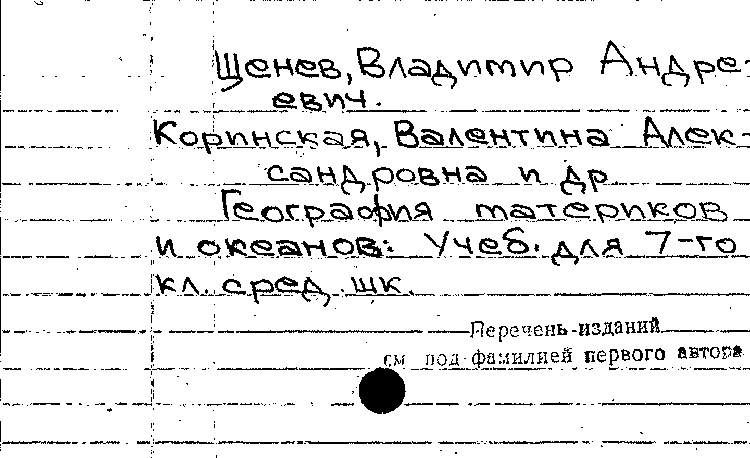 Щенев, Владимир Андре-
евич.
Коринская, Валентина Алек-
сандровна и др
География материков
и океанов: Учеб. для 7-го
кл. сред. шк.
Перечень изданий
см под фамилией первого автора